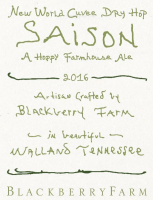 New World Cuvee Dry Hop
SAISON
A Hoppy Farmhouse Ale
2016
Artisan Crafted by
Blackberry Farm
in beautiful
WALLAND TENNESSEE
BLACKBERRY FARM